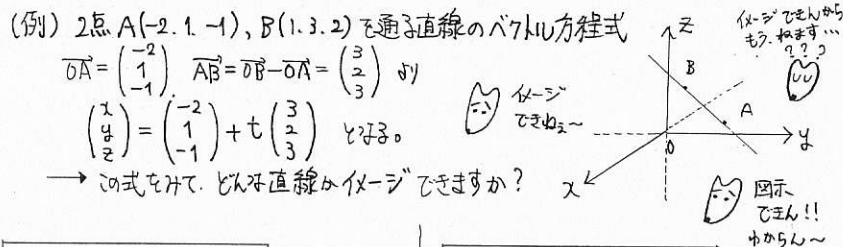 (例) 2点 A(-2. 1. -1), B(1. 3. 2) を通る直線のベクトル方程式
OA = (-2 1 -1). AB = OB - OA = (3 2 3) より
(x y z) = (-2 1 -1) + t (3 2 3) となる。
→ この式をみて. どんな直線かイメージできますか?
イメージ
できねぇ〜
z
B
A
O
y
x
イメージできんから
もう. ねます…
???
図示、
できん!!
わからん〜